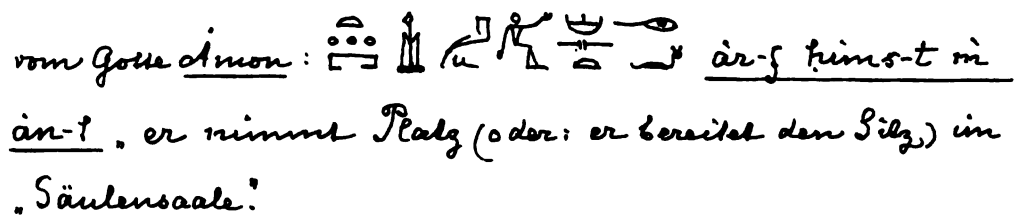 vom Gotte Åmon: år-f ḥims-t m
ån-t „er nimmt Platz (oder: er bereitet den Sitz) im
„Säulensaale".